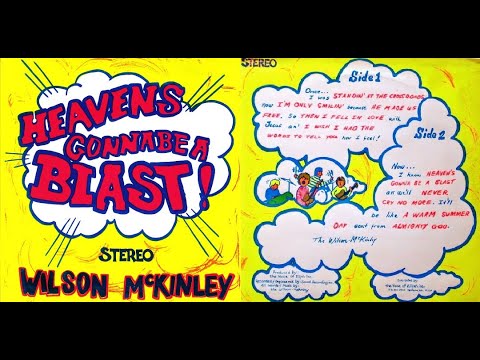 HEAVENS
GONNA BE A
BLAST!
STEREO
WILSON McKINLEY
STEREO
Side 1
Once...
I was STANDIN' AT THE CROSSROADS,
now I'M ONLY SMILIN' because HE MADE US
FREE, So THEN I FELL IN LOVE with
Jesus an' I WISH I HAD THE
WORDS TO TELL YOU how I feel!
Side 2
Now...
I know HEAVEN'S
GONNA BE A BLAST
an' we'll NEVER
CRY NO MORE. It'll
be like A WARM SUMMER
DAY sent from ALMIGHTY GOD.
The Wilson McKinley
Produced by
the Voice of Elijah Inc.
the Wilson McKinley
the Voice of Elijah Inc.